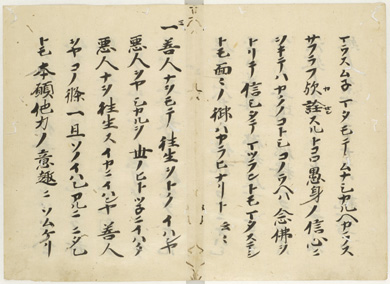 マフスムネ マタモテ ムナシカルヘカラス
サフラフ歟 詮スルトコロ愚身ノ信心ニ
ヲキテハカクノコトシ コノウヘハ 念佛ヲ
トリテ信シタテマツラントモ マタステン
トモ面々ノ御ハカラヒナリト云々
一 善人ナヲモテ 往生ヲトク イハンヤ
悪人ヲヤ シカルヲ 世ノヒトツネニイハク
悪人ナヲ往生ス イカニイハンヤ 善人
ヲヤ コノ條 一旦ソノイハレアルニ ニタレ
トモ 本願他力ノ意趣ニ ソムケリ